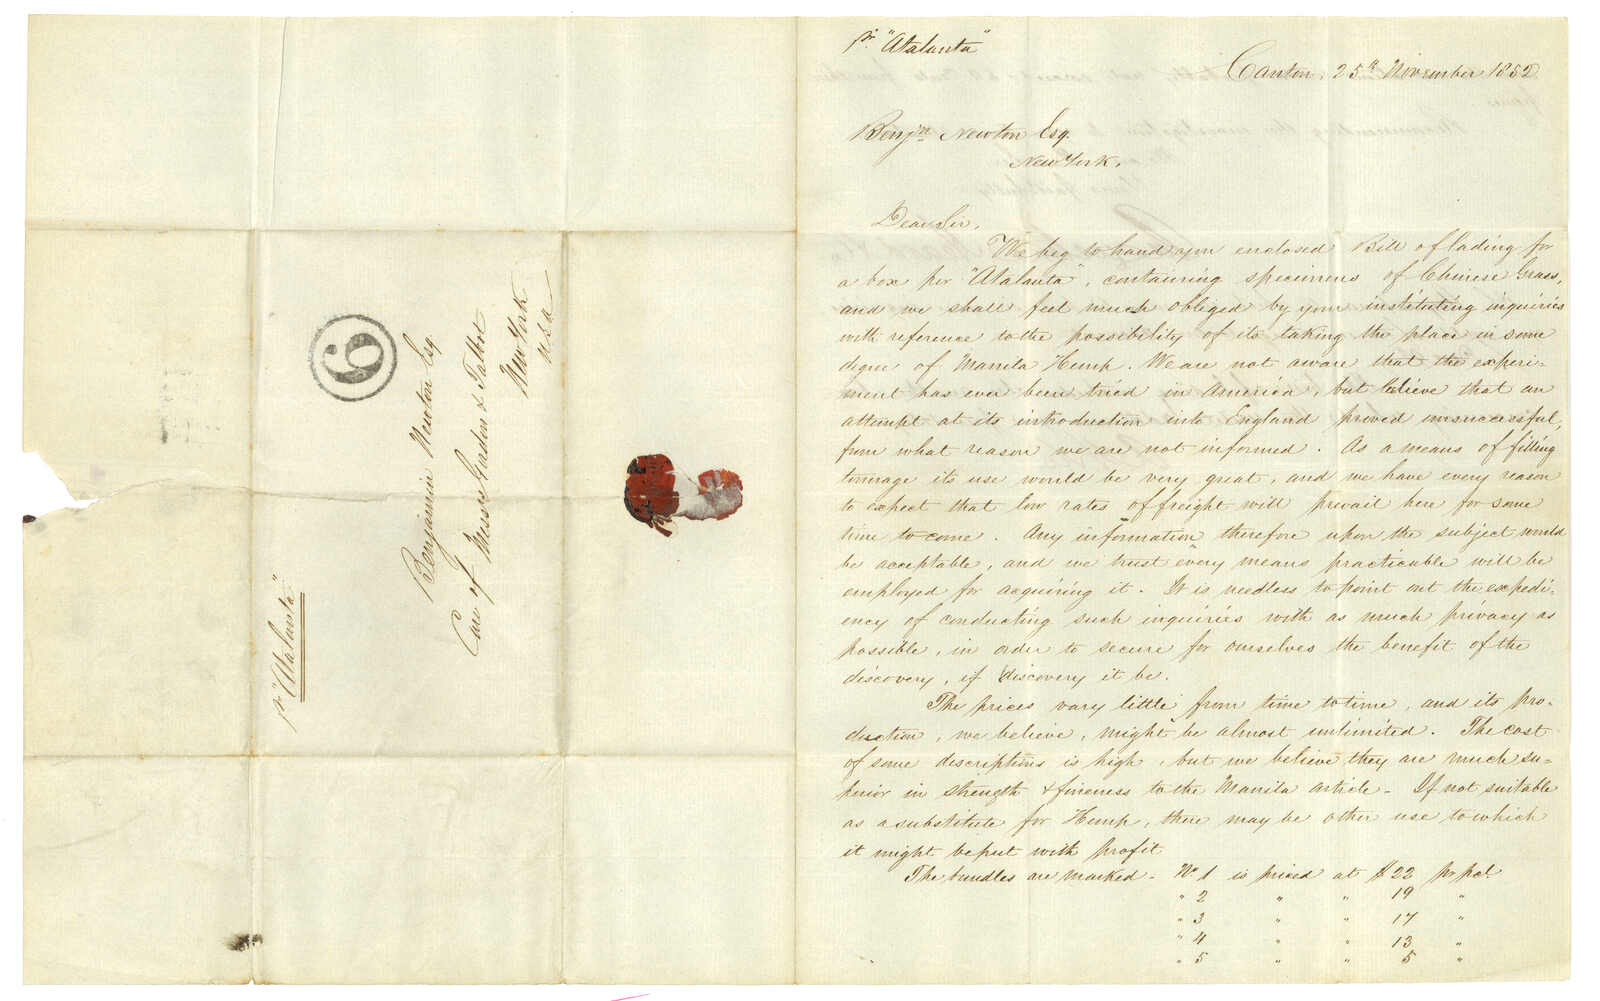 pr "Atalanta"
6
Benjamin Newton Esq
Care of Messrs Gordon & Talbot
New York
U.S.A.
pr "Atalanta"
Canton, 25th November 1852
Benjn Newton Esq.
New York.
Dear Sir,
We beg to hand you enclosed Bill of lading for
a box per "Atalanta", containing specimens of Chinese Grass,
and we shall feel much obliged by your instituting inquiries
with reference to the possibility of its taking the place in some
degree of Manila Hemp. We are not aware that the experi-
ment has ever been tried in America, but believe that an
attempt at its introduction into England proved unsuccessful,
from what reason we are not informed. As a means of filling
tonnage its use would be very great, and we have every reason
to expect that low rates of freight will prevail here for some
time to come. Any information therefore upon the subject would
be acceptable, and we trust every means practicable will be
employed for acquiring it. It is needless to point out the expedi-
ency of conducting such inquiries with as much privacy as
possible, in order to secure for ourselves the benefit of the
discovery, if discovery it be.
The prices vary little from time to time, and its pro-
duction, we believe, might be almost unlimited. The cost
of some descriptions is high, but we believe they are much su-
perior in strength & fineness to the Manila article. If not suitable
as a substitute for Hemp, there may be other use to which
it might be put with profit
The bundles are marked - No 1 is priced at $22 pr pcl.
" 2 " " 19 "
" 3 " " 17 "
" 4 " " 13 "
" 5 " " 5 "